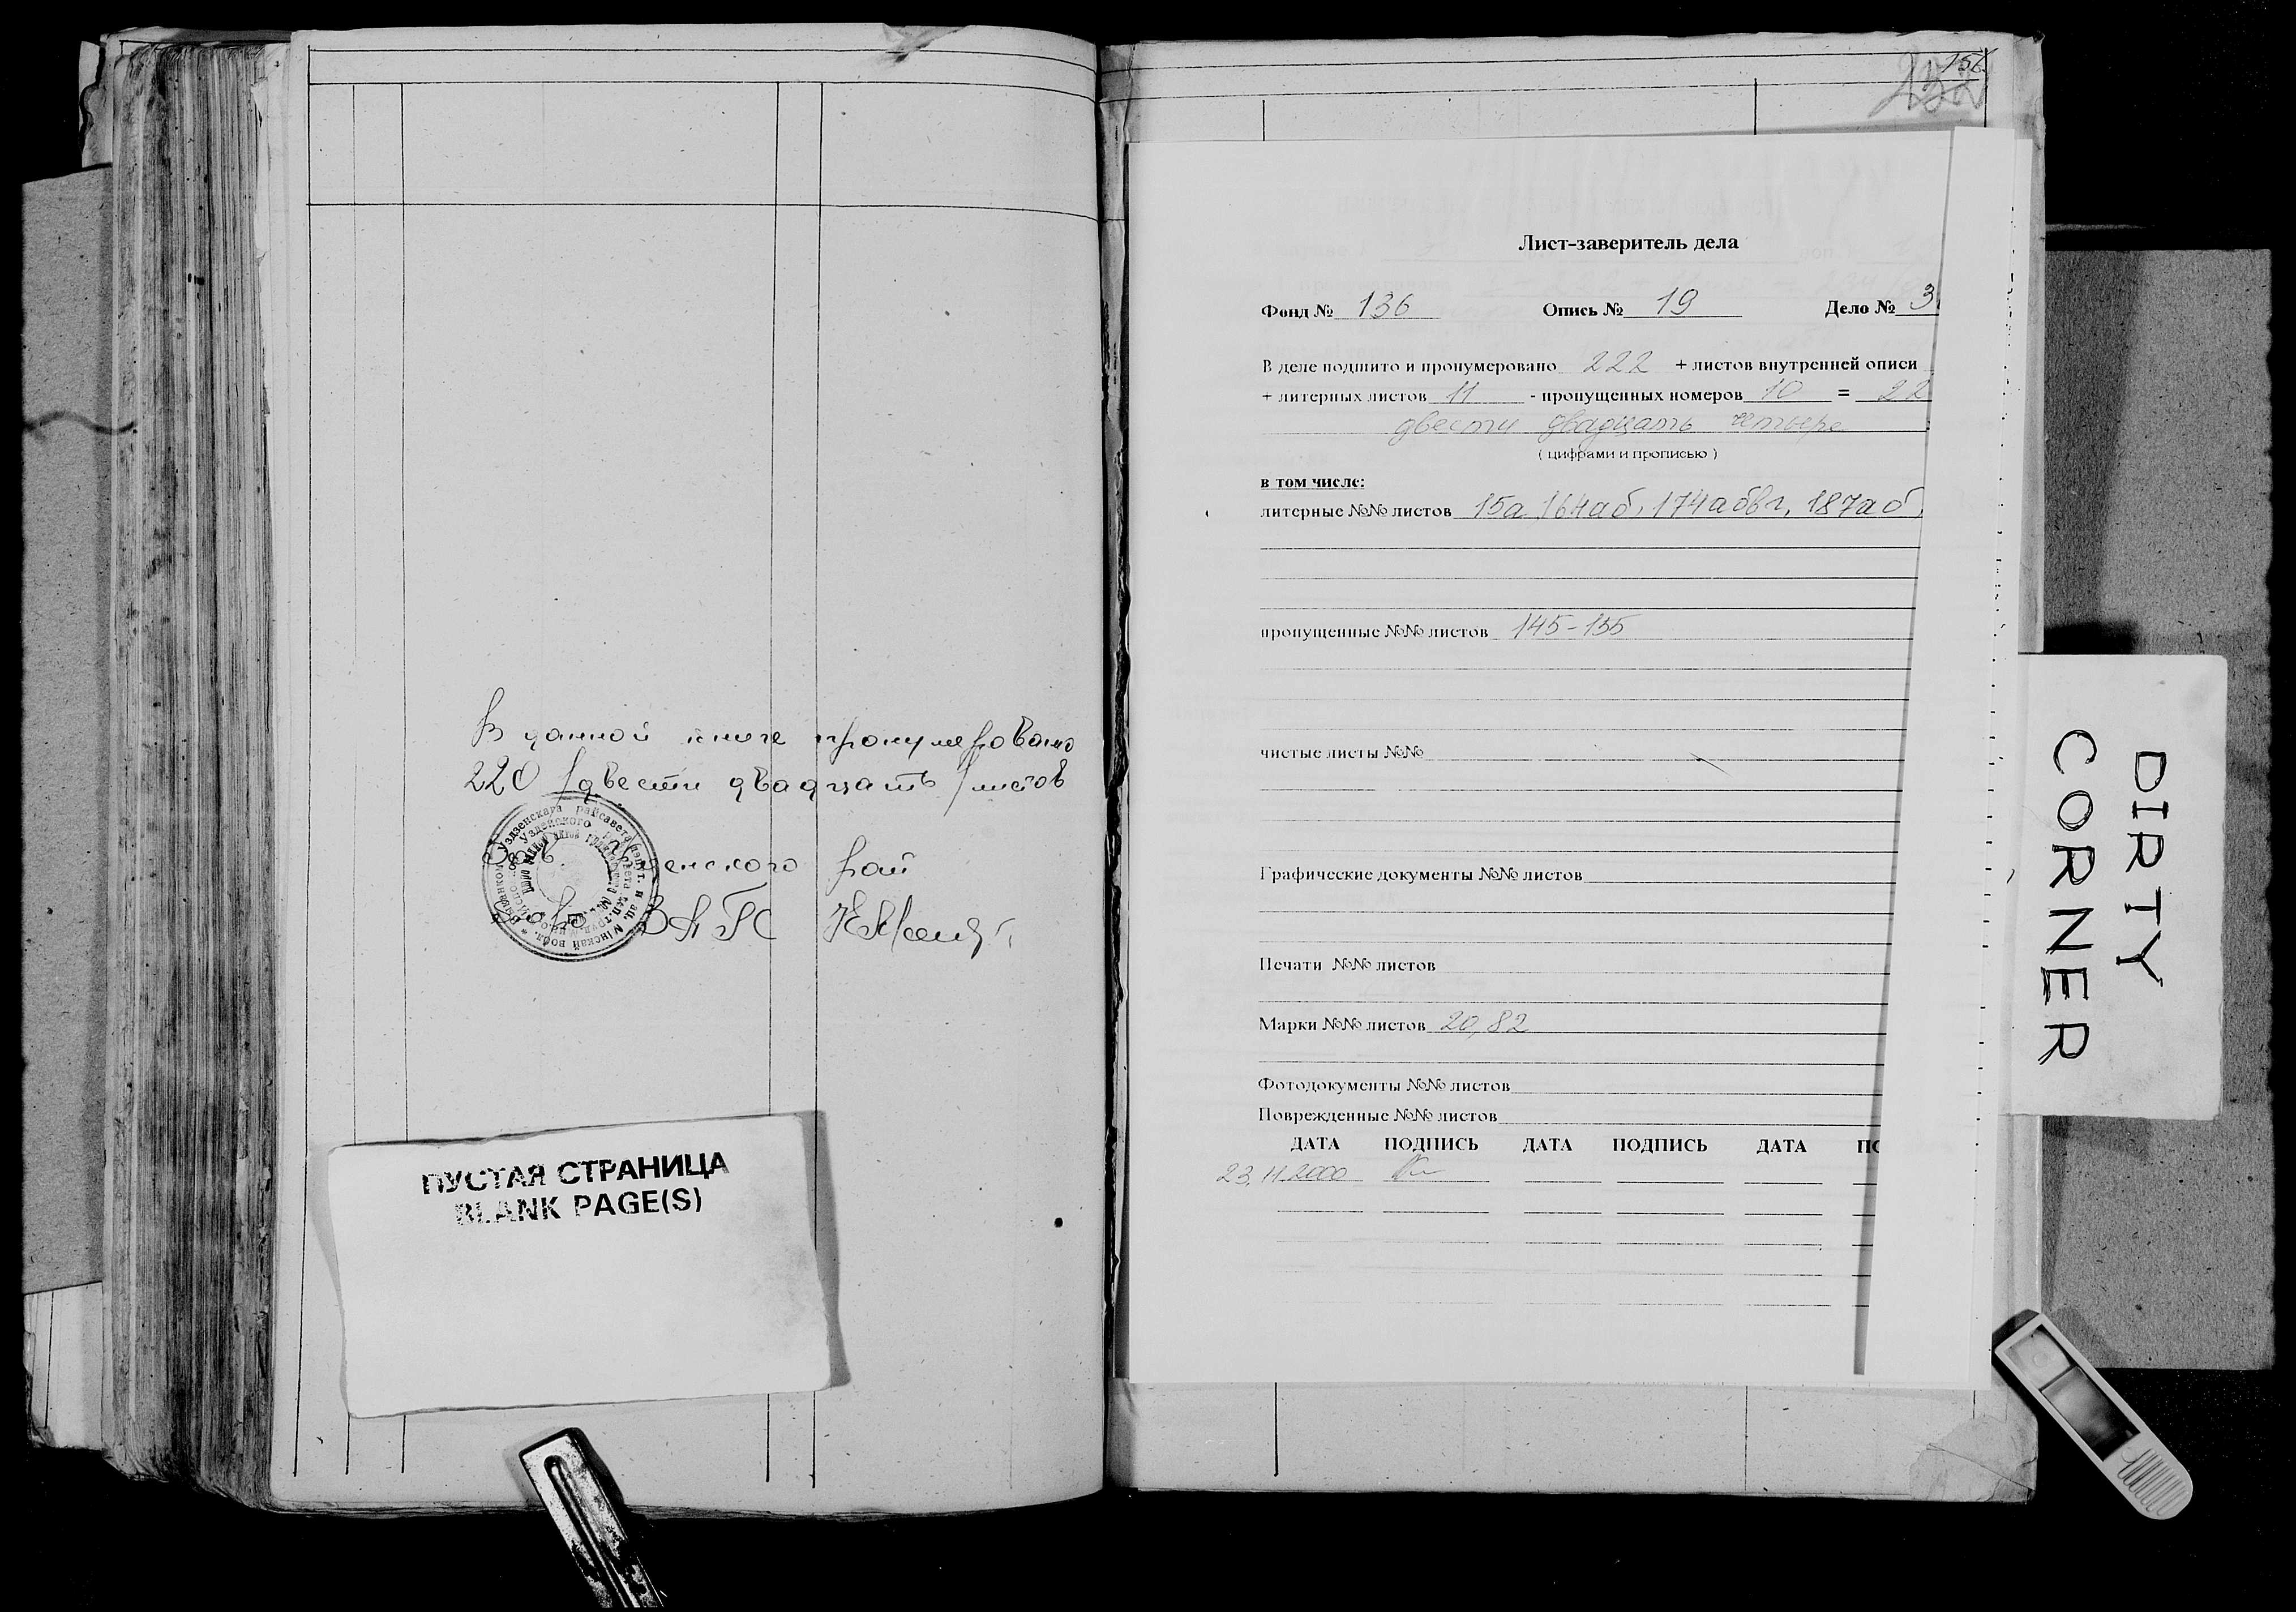 В данной книге пронумеровано
220 /двести двадцать/ листов
Узденского рай
ЗАГС
ПУСТАЯ СТРАНИЦА
BLANK PAGE(S)
156
Лист-заверитель дела
Фонд № 136 Опись № 19 Дело № 3
В деле подшито и пронумеровано 222 + листов внутренней описи
+ литерных листов 11 - пропущенных номеров 10 = 22
двести двадцать четыре
( цифрами и прописью )
в том числе:
литерные №№ листов 15а, 164аб, 174абвг, 187аб,
пропущенные №№ листов 145-155
чистые листы №№
Графические документы №№ листов
Печати №№ листов
Марки №№ листов 20,82
Фотодокументы №№ листов
Поврежденные №№ листов
ДАТА ПОДПИСЬ ДАТА ПОДПИСЬ ДАТА ПО
23.11.2000
DIRTY
CORNER